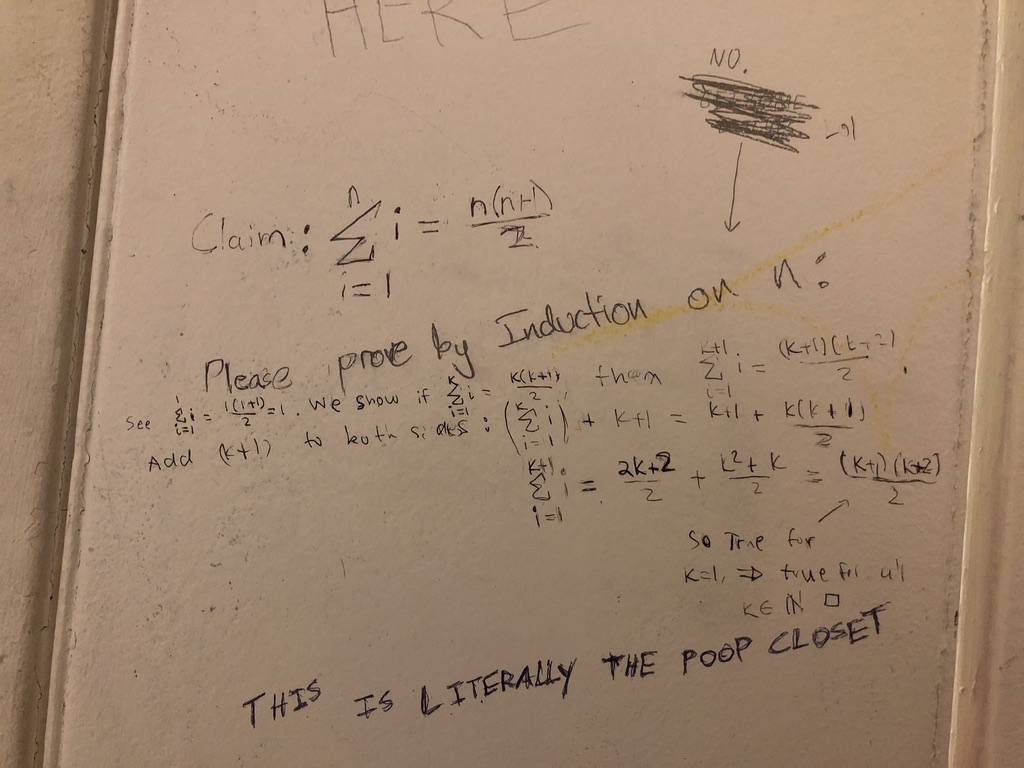 HERE
NO.
Lol
Claim: ∑_{i=1}^{n} i = n(n+1)/2
Please prove by Induction on n:
See ∑_{i=1}^{1} i = 1(1+1)/2 = 1. We show if ∑_{i=1}^{k} i = k(k+1)/2, then ∑_{i=1}^{k+1} i = (k+1)(k+2)/2.
Add (k+1) to both sides: (∑_{i=1}^{k} i) + k+1 = k+1 + k(k+1)/2
∑_{i=1}^{k+1} i = 2k+2/2 + k²+k/2 = (k+1)(k+2)/2
So True for
k=1, ⇒ true for all
k∈ℕ □
THIS IS LITERALLY THE POOP CLOSET